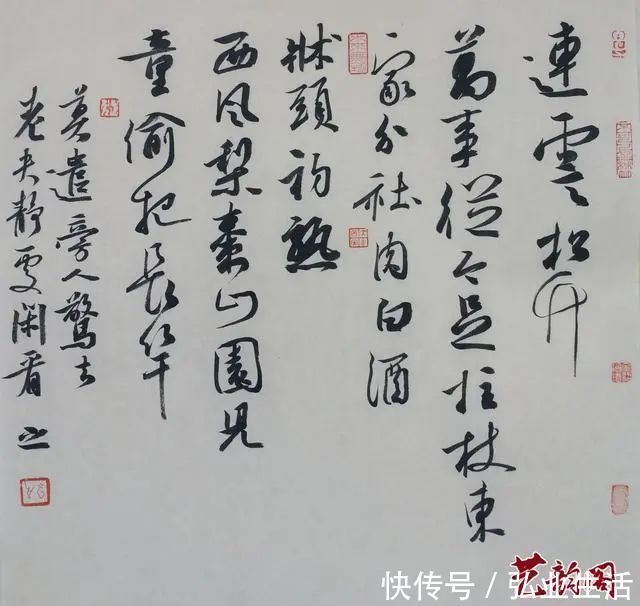 連雲松竹
萬事從今足拄杖東
家分社肉白酒
牀頭初熟
西風棃棗山園兒
童偷把長竿
莫遣旁人驚去
老夫靜處閑看
艺韵阁
快传号 / 弘业生活